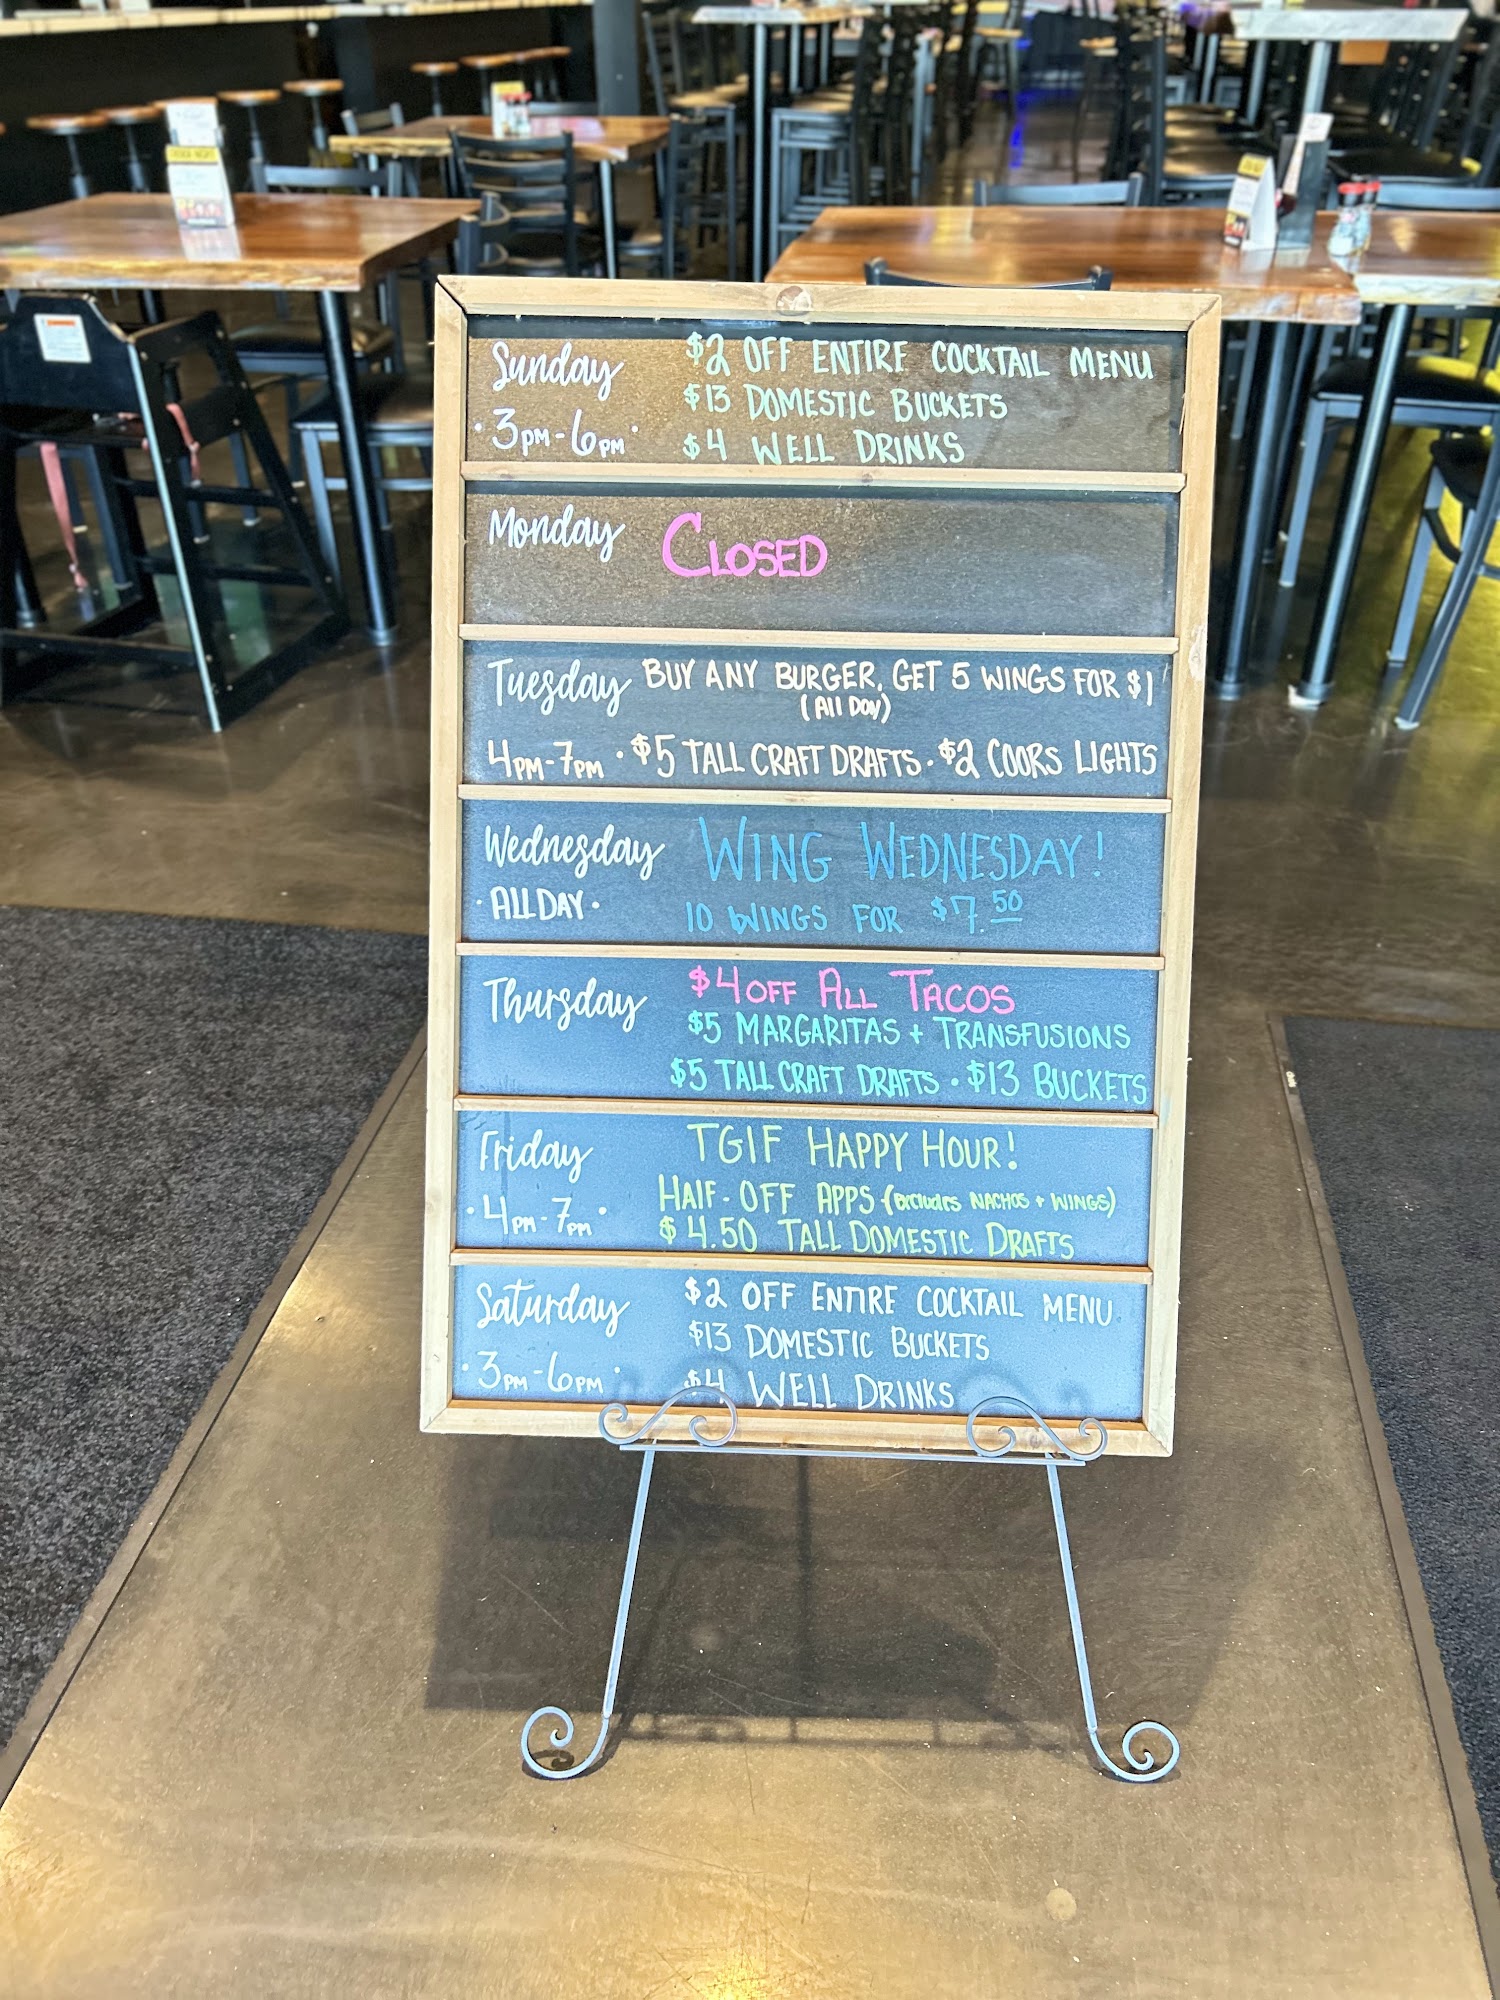 Sunday
· 3PM-6PM ·
$2 OFF ENTIRE COCKTAIL MENU
$13 DOMESTIC BUCKETS
$4 WELL DRINKS
Monday
CLOSED
Tuesday
BUY ANY BURGER, GET 5 WINGS FOR $1
(All DAY)
4PM-7PM · $5 TALL CRAFT DRAFTS · $2 COORS LIGHTS
Wednesday
· ALL DAY ·
WING WEDNESDAY!
10 WINGS FOR $7.50
Thursday
$4 OFF ALL TACOS
$5 MARGARITAS + TRANSFUSIONS
$5 TALL CRAFT DRAFTS · $13 BUCKETS
Friday
· 4PM-7PM ·
TGIF HAPPY HOUR!
HALF-OFF APPS (excludes NACHOS + WINGS)
$4.50 TALL DOMESTIC DRAFTS
Saturday
· 3PM-6PM ·
$2 OFF ENTIRE COCKTAIL MENU
$13 DOMESTIC BUCKETS
$4 WELL DRINKS